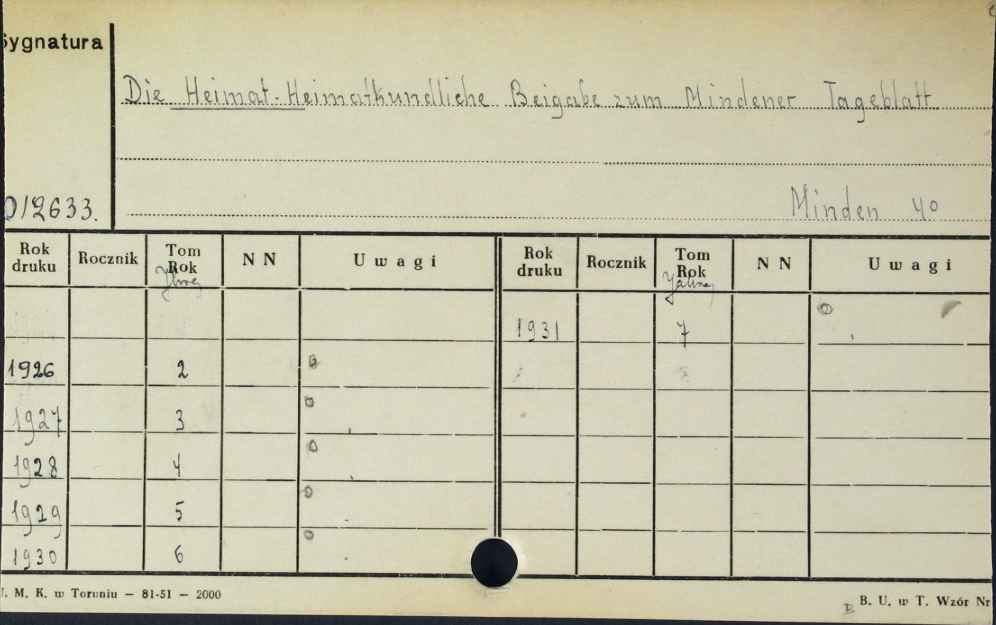 Sygnatura
Die Heimat-Heimatkundliche Beigabe zum Mindener Tageblatt
Minden 4°
0/2633.
Rok druku Rocznik Tom Rok NN Uwagi Rok druku Rocznik Tom Rok NN Uwagi
1931 7
1926 2
1927 3
1928 4
1929 5
1930 6
. M. K. w Toruniu — 81-51 — 2000
B. U. w T. Wzór Nr